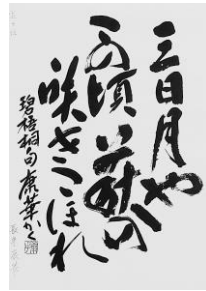 三日月や
この頃萩の
咲きこほれ
碧梧桐句 康華かく